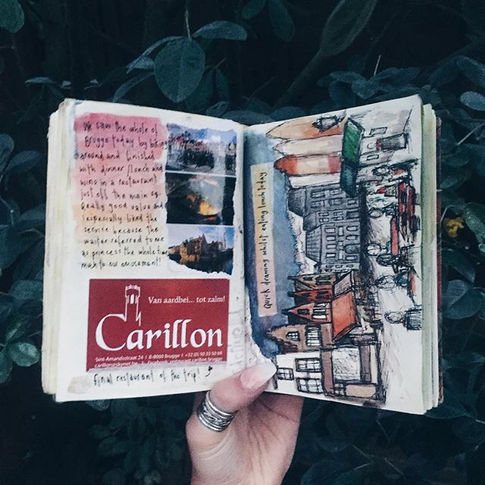 We saw the whole of
Brugge today by biking
around and finished
with dinner, lunch and
in a restaurant
just off the main sq.
Really good value and
especially liked the
service because the
waiter referred to me
as princess the whole time
much to our amusement!
Van aardbei... tot zalm!
Carillon
Sint-Amandsstraat 24 I B-8000 Brugge I
Final restaurant of the trip!
Quick drawing whilst eating lunch today.